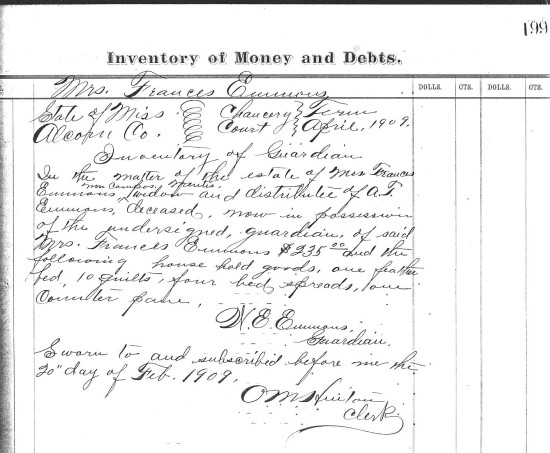 199
Inventory of Money and Debts.
DOLLS. CTS. DOLLS. CTS.
Mrs. Frances Emmons
State of Miss. Chancery Term
Alcorn Co. Court April, 1909.
Inventory of Guardian
In the matter of the estate of Mrs Frances
Emmons non compos mentis widow and distributee of A.T.
Emmons, deceased, now in possession
of the undersigned, guardian, of said
Mrs. Frances Emmons $235.00 and the
following house hold goods, one feather
bed, 10 quilts, four bed spreads, one
Counter pane,
N. E. Emmons
Guardian.
Sworn to and subscribed before me the
20" day of Feb. 1909.
O M Hinton
Clerk